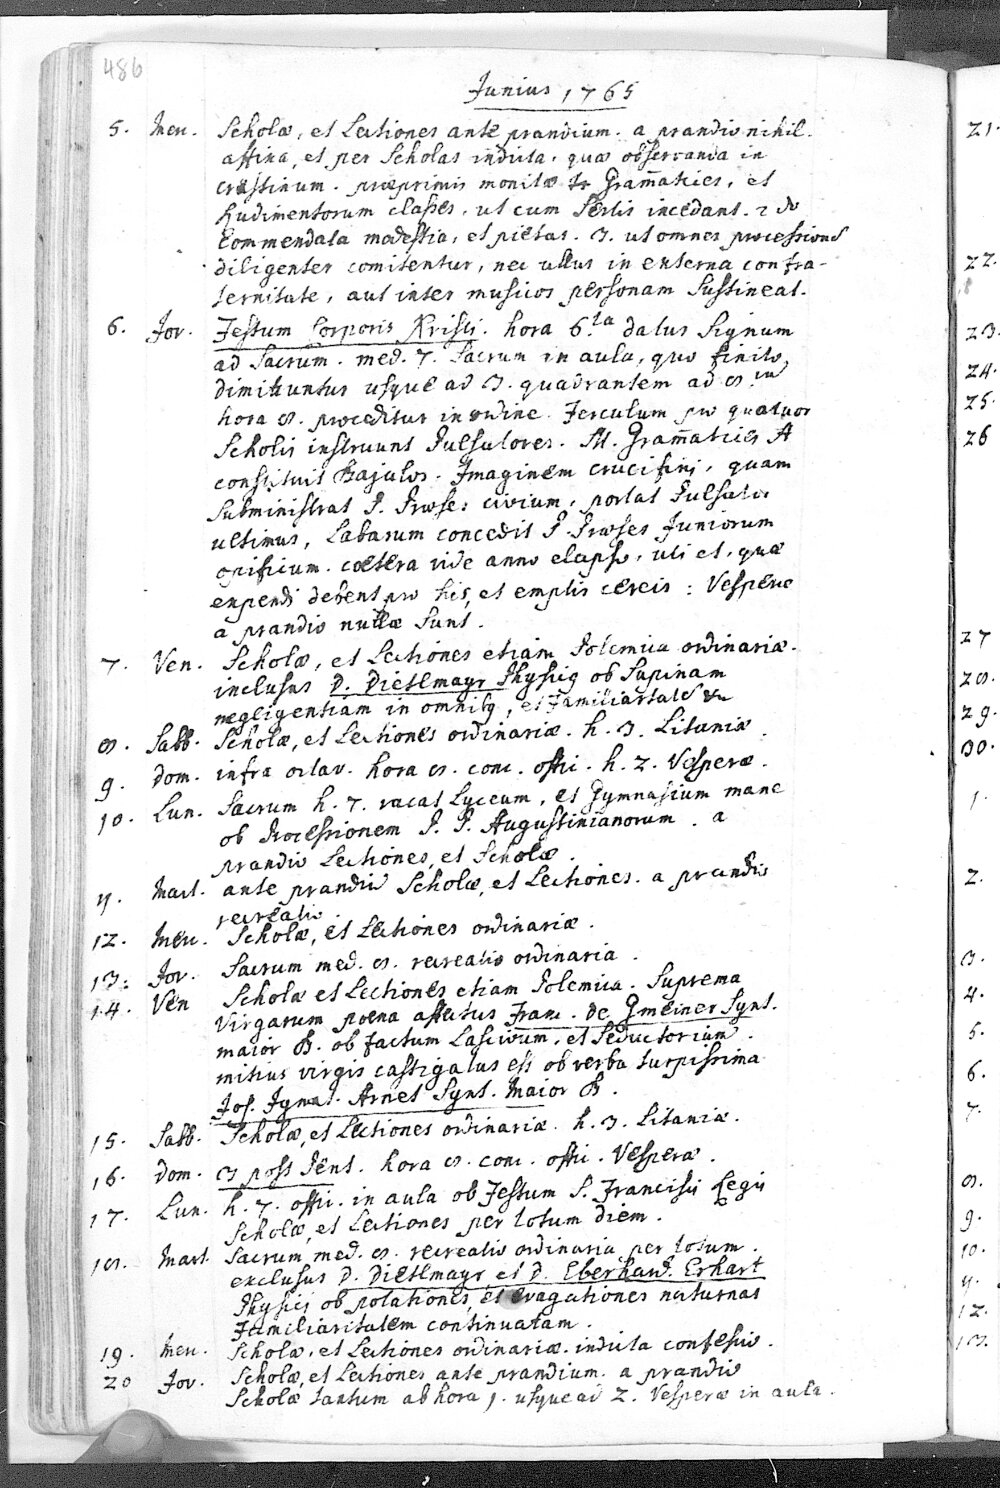 486
Junius 1765
5. Merc. Scholæ, et Lectiones ante prandium. a prandio nihil.
affixa, et per Scholas indicta, quæ observanda in
crastinum. præprimis monitæ Gram̄atices, et
Rudimentorum classes, ut cum Sertis incedant. 2 do
Commendata modestia, et pietas. 3. ut omnes processiones
diligenter comitentur, nec ullus in externa confra-
ternitate, aut inter musicos personam Sustineat.
6. Jov. Festum Corporis Xristi. hora 6.ta datus Signum
ad Sacrum. med. 7. Sacrum in aula, quo finito,
dimittuntur usque ad 3. quadrantem ad 8.vu
hora 8. proceditur in ordine. Ferculum pro quatuor
Scholis instruunt Pulsatores. M. Gram̄atices A
constituit Bajulos. Imaginem crucifixi, quam
Subministrat P. Præses civium, portat Pulsator
ultimus, Labarum concedit P. Præses Juniorum
opificum. cætera vide anno elapso, uti et, quæ
expendi debent pro his, et emptis cereis: Vesperæ
a prandio nullæ Sunt.
7. Ven. Scholæ, et Lectiones etiam Polemica ordinariæ.
inclusus D. Dietlmayr Physicq ob Supinam
negligentiam in omnibq, et Familiaritatē
8. Sabb. Scholæ, et Lectiones ordinariæ. h. 3. Litaniæ.
9. Dom. infra octav. hora 8. conc. offic. h. 2. Vesperæ.
10. Lun. Sacrum h. 7. vacat Lyceum, et Gymnasium mane
ob Processionem P. P. Augustinianorum. a
prandio Lectiones, et Scholæ.
11. Mart. ante prandiū Scholæ, et Lectiones. a prandio
recreatio.
12. Merc. Scholæ, et Lectiones ordinariæ.
13. Jov. Sacrum med. 8. recreatio ordinaria.
14. Ven Scholæ et Lectiones etiam Polemica. Suprema
Virgarum poena affectus Franc. de Gmeiner Synt.
maior B. ob factum Lascivum, et Seductorium.
mitius virgis castigatus est ob verba turpissima
Jos. Ignat. Arnet Synt. Maior B.
15. Sabb. Scholæ, et Lectiones ordinariæ. h. 3. Litaniæ.
16. Dom. 3 post Pent. hora 8. conc. offic. Vesperæ.
17. Lun. h. 7. offic. in aula ob Festum S. Francisci Regis
Scholæ, et Lectiones per totum diem.
18. Mart. Sacrum med. 8. recreatio ordinaria per totum.
exclusus D. Dietlmayr et D. Eberhard. Erhart
Physici ob potationes, et evagationes nocturnas
Familiaritatem continuatam.
19. Merc. Scholæ, et Lectiones ordinariæ. indicta confessio.
20 Jov. Scholæ, et Lectiones ante prandium. a prandio
Scholæ tantum ab hora 1. usque ad 2. Vesperæ in aula.
21.
22.
23.
24.
25.
26
27
28.
29.
30.
1.
2.
3.
4.
5.
6.
7.
8.
9.
10.
11.
12.
13.